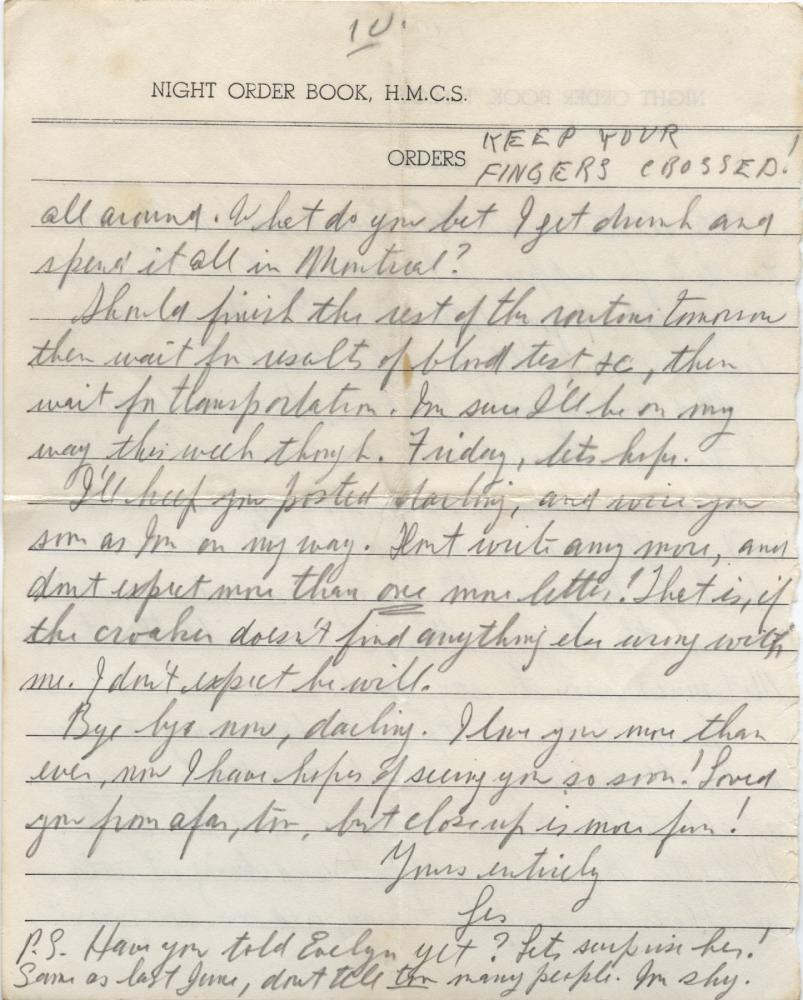 10.
NIGHT ORDER BOOK, H.M.C.S.
KEEP YOUR
ORDERS FINGERS CROSSED!
all around. What do you bet I get drunk and
spend it all in Montreal?
Should finish the rest of the routine tomorrow
then wait for results of blood test &c, then
wait for transportation. Im sure I'll be on my
way this week though. Friday, lets hope.
I'll keep you posted darling, and wire you
soon as Im on my way. Dont write any more, and
dont expect more than one more letter! That is, if
the croaker doesn't find anything else wrong with
me. I don't expect he will.
Bye bye now, darling. I love you more than
ever, now I have hopes of seeing you so soon! Loved
you from afar, too, but close up is more fun!
Yours entirely
Les
P.S. Have you told Evelyn yet? Lets surprise her!
Same as last June, dont tell too many people. Im shy.